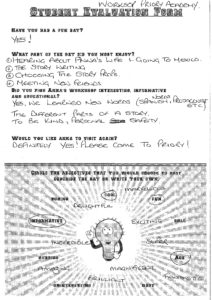 WORKSOP PRIORY ACADEMY
STUDENT EVALUATION FORM
HAVE YOU HAD A FUN DAY?
YES!
WHAT PART OF THE DAY DID YOU MOST ENJOY?
① HEARING ABOUT ANNA'S LIFE & GOING TO MEXICO.
② THE STORY WRITING
③ CHOOSING THE STORY PROPS
④ MEETING NEW FRIENDS
DID YOU FIND ANNA'S WORKSHOP INTERESTING, INFORMATIVE
AND EDUCATIONAL?
YES, WE LEARNED NEW WORDS (SPANISH,
THE DIFFERENT PARTS OF A STORY.
TO BE KIND, PERSONAL SAFETY
WOULD YOU LIKE ANNA TO VISIT AGAIN?
DEFINITELY YES! PLEASE COME TO PRIORY!
CIRCLE THE ADJECTIVES THAT YOU WOULD CHOOSE TO BEST
DESCRIBE THE DAY OR WRITE YOUR OWN:
BORING
FUN
DELIGHTFUL
INFORMATIVE
EXCITING
DULL
INCREDIBLE
SUPER
AMAZING
MAGNIFICENT
BRILLIANT
FANTASTIC
BAD